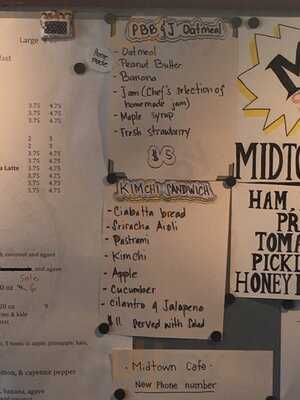 Large
3.75 4.75
3.75 4.75
3.75 4.75
2 3
2 3
3.75 4.75
3.75 4.75
a Latte 3.75 4.75
3.75 4.75
3.75 4.75
3.75 4.75
coconut and agave
and agave
20 oz 9
n & kale
Home made
PBB & J Oatmeal
- Oatmeal
- Peanut Butter
- Banana
- Jam (Chef's selection of
homemade jam)
- Maple syrup
- Fresh strawberry
$5
KIMCHI SANDWICH
- Ciabatta bread
- Sriracha Aioli
- Pastrami
- Kimchi
- Apple
- Cucumber
- cilantro & Jalapeno
$11 Served with Salad
- Midtown Cafe -
New Phone number
MIDTOW
HAM,
PR
TOMA
PICKL
HONEY
& cayenne pepper
banana, agave